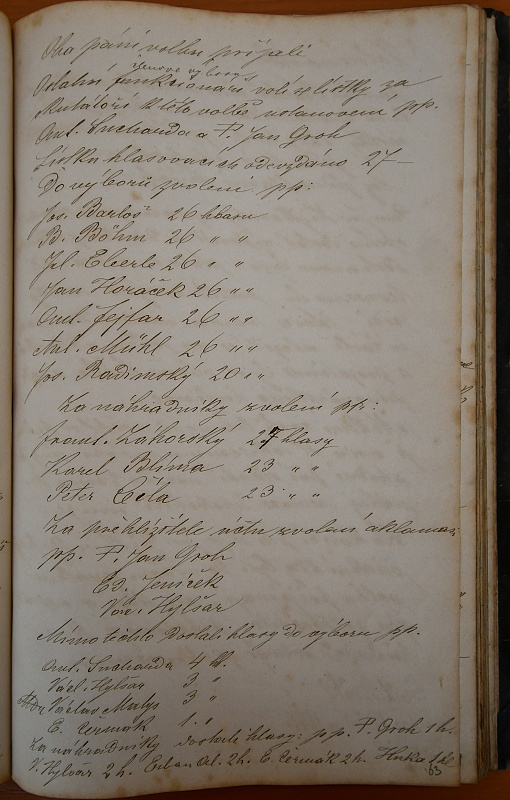 Oba páni volbu přijali
členové výboru
Ostatní funkcionáři volí se lístky za
skutátóři k této volbě ustanoveni pp.
Ant. Suchanda a P. Jan Groh
Lístků hlasovacích odevzdáno 27 —
Do výboru zvoleni pp:
Jos. Bartoš 26 hlasu
B. Böhm 26 " "
Jul. Eberle 26 " "
Jan Horáček 26 " "
Ant. Fejfar 26 " "
Ant. Mühl 26 " "
Jos. Radimský 20 " "
Za náhradníky zvoleni pp:
Frant. Záhorský 27 hlasy
Karel Blíma 23 " "
Peter Céla 23 " "
Za prehlížitele účtu zvoleni aklamací
pp. P. Jan Groh
Ed. Jeníček
Hylšar
Mimo těchto dostali hlasy do výboru pp.
Ant. Suchanda 4 hl.
Václ. Hylšar 3 "
Václav 3 "
E. Čermák 1. "
Za náhradníky dostali hlasy: pp. P. Groh 1 h.
V. Hylšar 2 h. 2h. E. Čermák 2h. 1 hl
63